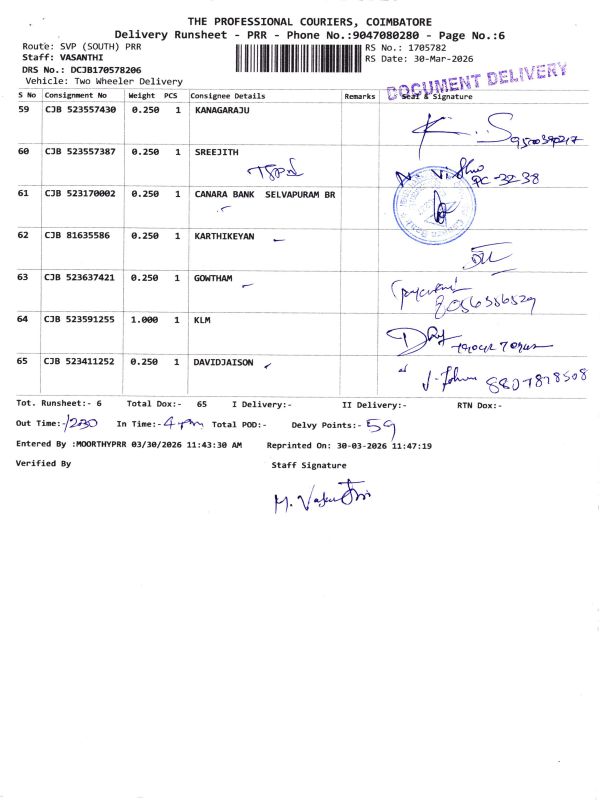 THE PROFESSIONAL COURIERS, COIMBATORE
Delivery Runsheet - PRR - Phone No.:9047080280 - Page No.:6
Route: SVP (SOUTH) PRR
RS No.: 1705782
Staff: VASANTHI
RS Date: 30-Mar-2026
DRS No.: DCJB170578206
Vehicle: Two Wheeler Delivery
DOCUMENT DELIVERY
S No Consignment No Weight PCS Consignee Details Remarks Seal & Signature
59 CJB 523557430 0.250 1 KANAGARAJU
60 CJB 523557387 0.250 1 SREEJITH
61 CJB 523170002 0.250 1 CANARA BANK SELVAPURAM BR
62 CJB 81635586 0.250 1 KARTHIKEYAN
63 CJB 523637421 0.250 1 GOWTHAM
64 CJB 523591255 1.000 1 KLM
65 CJB 523411252 0.250 1 DAVIDJAISON
8807878508
Tot. Runsheet:- 6 Total Dox:- 65 I Delivery:- II Delivery:- RTN Dox:-
Out Time:- 1230 In Time:- 4 pm Total POD:- Delvy Points:- 59
Entered By :MOORTHYPRR 03/30/2026 11:43:30 AM Reprinted On: 30-03-2026 11:47:19
Verified By Staff Signature